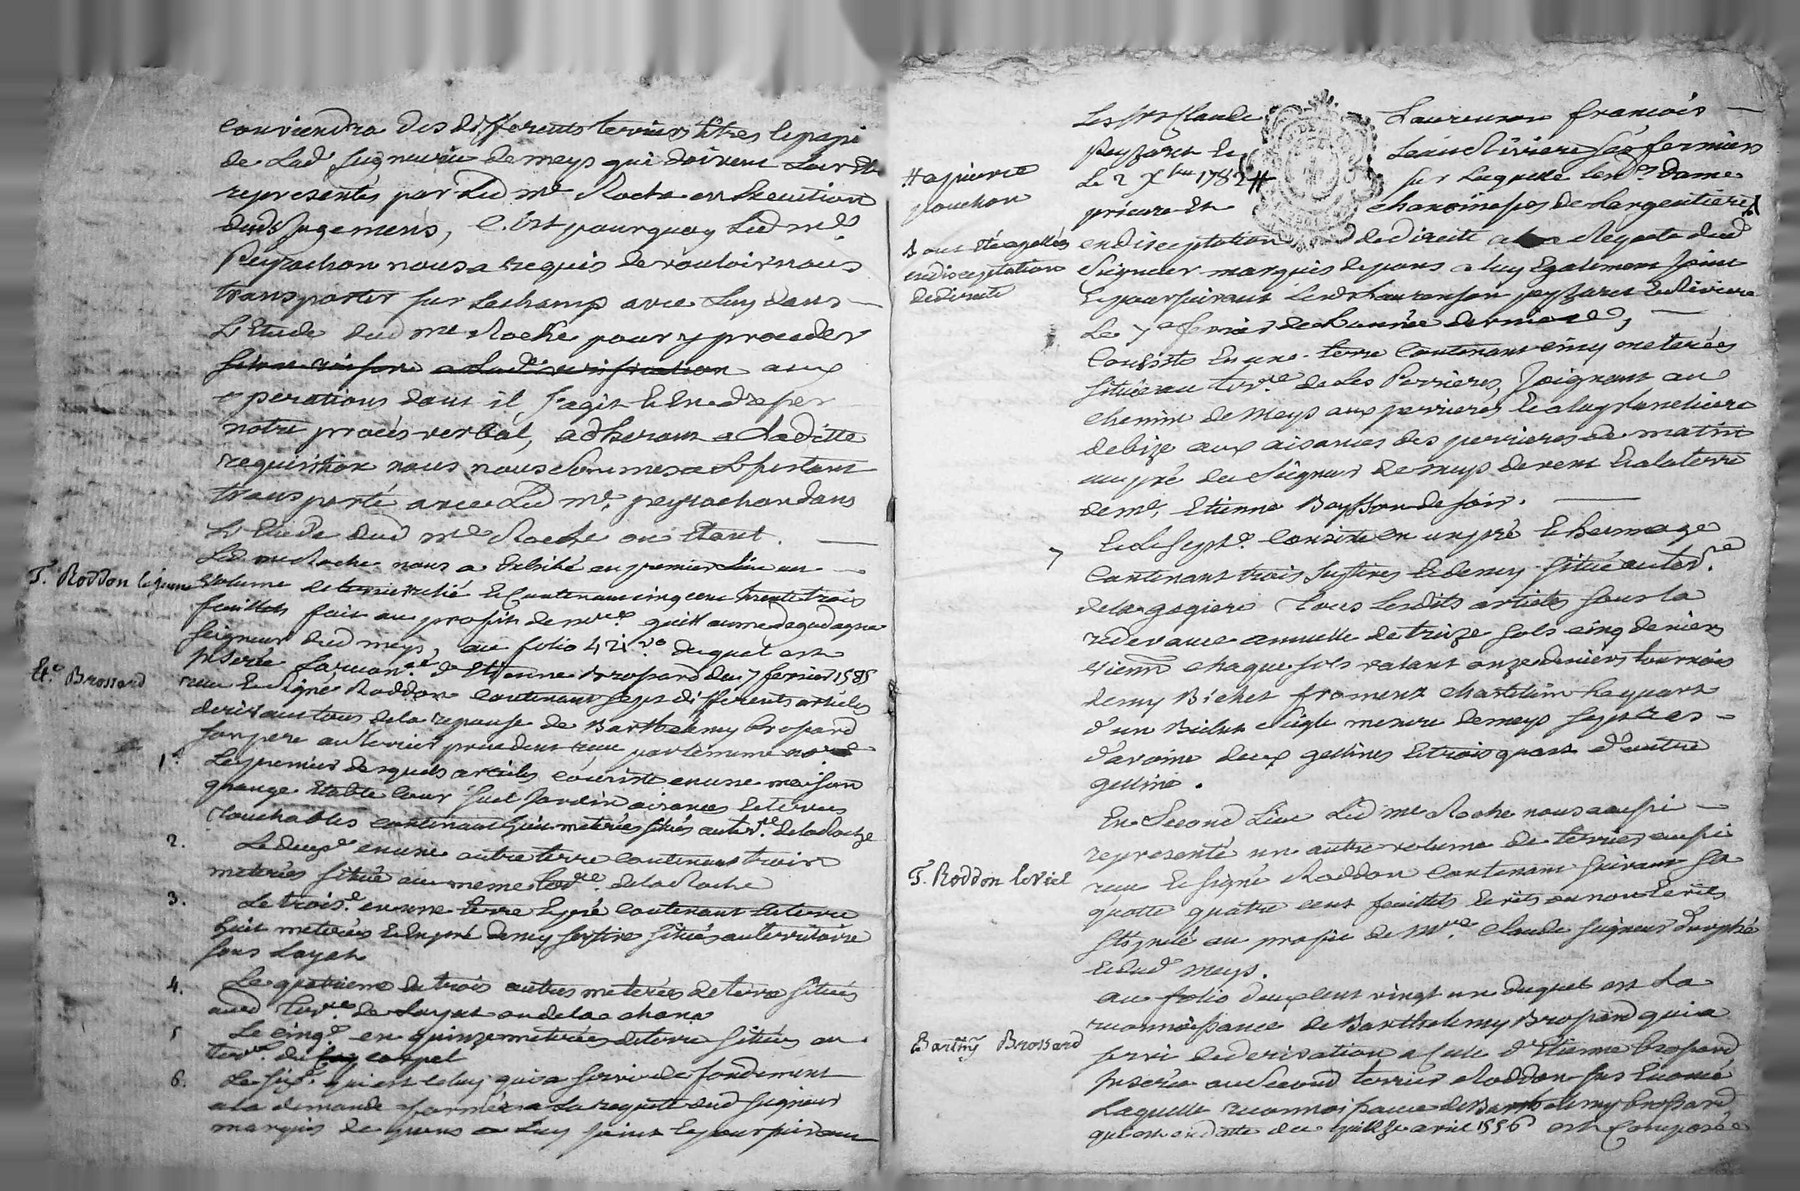 conviendra des differents terriers titres le papi
de lad. seigneurie de meys qui doivent leur etre
representés par led. me. Roche en execution
dud. jugement, c'est pourquoy led. me.
Peyrachon nous a requis de vouloir nous
transporter sur le champ avec luy dans
L'Etude dud. me Roche pour y proceder
aux
operations dont il s'agit et en dresser
notre procés verbal, adherant a la ditte
requisition nous nous sommes a l'instant
transporté avec led. me. peyrachon dans
L'Etude dud. me Roche ou etant.
Led. me Roche nous a exhibé en premier lieu un
T. Roddon le jeune
volume de terrier relié et contenant cinq cent trente trois
feuillets fait au profit de mre. guillaume de gadagne
seigneur dud. meys, au folio 42 vo duquel est
Et. Brossard
inserée la reconce. d'Etienne Brossard du 7 fevrier 1585
reçue et signée Roddon contenant sept differents articles
derivant tous de la reponse de Barthelemy brossard
son pere au terrier precedent reçu par le meme nore.
1. Le premier desquels articles consiste en une maison
grange Etable Cour suel jardin aisances et terres
touchables contenant huit meterées situés au terre. de la Roche
2. Le deuxe. en une autre terre contenant trois
meterées située au meme terre. de la Roche
3. Le trois. en une terre et pré contenant la terre
huit meterées et le pré demy septive situés au territoire
sous Layat
4. Le quatrieme de trois autres meterées de terre situés
aud. terre. de Layat ou de la chana
5 Le cinqe. en quinze meterées de terre situées au
terre. de cappel
6. Le sixe. qui est celuy qui a servi de fondement
a la demande formée a la requete dud. seigneur
marquis de pons a luy joint et poursuivant
Les srs Claude Laurenson françois
peyzaret et Jean Riviere ses fermiers
Le 2 Xbre 1782 # sur laquelle lesd. dame
# a pierre
ponchon
prieure et chanoinesses de Largentiere
ont eté apellés
en disceptation
de directe
en disceptation de directe a la Requete dud.
seigneur marquis de pons a luy egalement joint
et poursuivant lesd. Laurenson peyzaret et Riviere
Le 7e fevrier de l'année derniere,
Consiste en une terre contenant cinq meterées
située au terre. de Les Perrieres, joignant au
chemin de Meys aux perrieres
de bize aux aisances des perrieres de matin
au pré du seigneur de meys de vent et a la terre
de me. Etienne Boysson de soir.
7 Et le septe. consiste en un pré et hermage
contenant trois septives et demy situé au terre.
de la gagiere tous lesdits articles sous la
redevance annuelle de treize sols cinq deniers
vienn. chaque sols valant onze deniers tournois
demy Bichet froment chatelün le quart
d'un Bichet seigle mesure de meys sept ras
d'avoine deux gellines et trois quart d'autre
gelline.
En second lieu led. me Roche nous a aussi
representé un autre volume de terrier aussi
T. Roddon le viel
reçu et signé Roddon contenant suivant sa
quotte quatre cent feuillets ecrits ou non ecrits
stipulé au profit de Mre. Claude seigneur d'urphé
et dud. meys.
au folio deux cent vingt un duquel est la
reconnoissance de Barthelemy Brossard qui a
Barthmy Brossard
servi de derivation a celle d'Etienne brossard
inserée au second terrier Roddon sus Enoncé
Laquelle reconnoissance de Barthelemy brossard
qui est en datte du quinze avril 1556 est composée